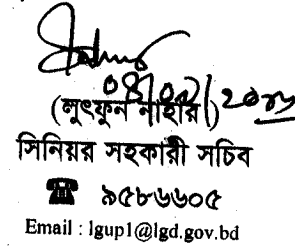 (লুৎফুন নাহার)
সিনিয়র সহকারী সচিব
☎ ৯৫৮৬৬০৫
Email : lgup1@lgd.gov.bd